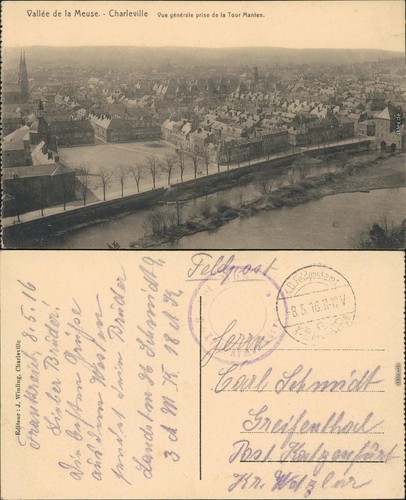 Vallée de la Meuse. - Charleville Vue générale prise de la Tour Manten.
Editeur: J. Winling, Charleville
Frankreich 8.5.16
Lieber Bruder!
Die besten Grüße
aus dem Westen
sendet dein Bruder
Landstm Hr Schmidt 2
3 ch M K 18 A K
Feldpost
8.5.16.11-12 V
Herrn
Carl Schmidt
Greifenthal
Post Katzenfurt
Kr. Wetzlar